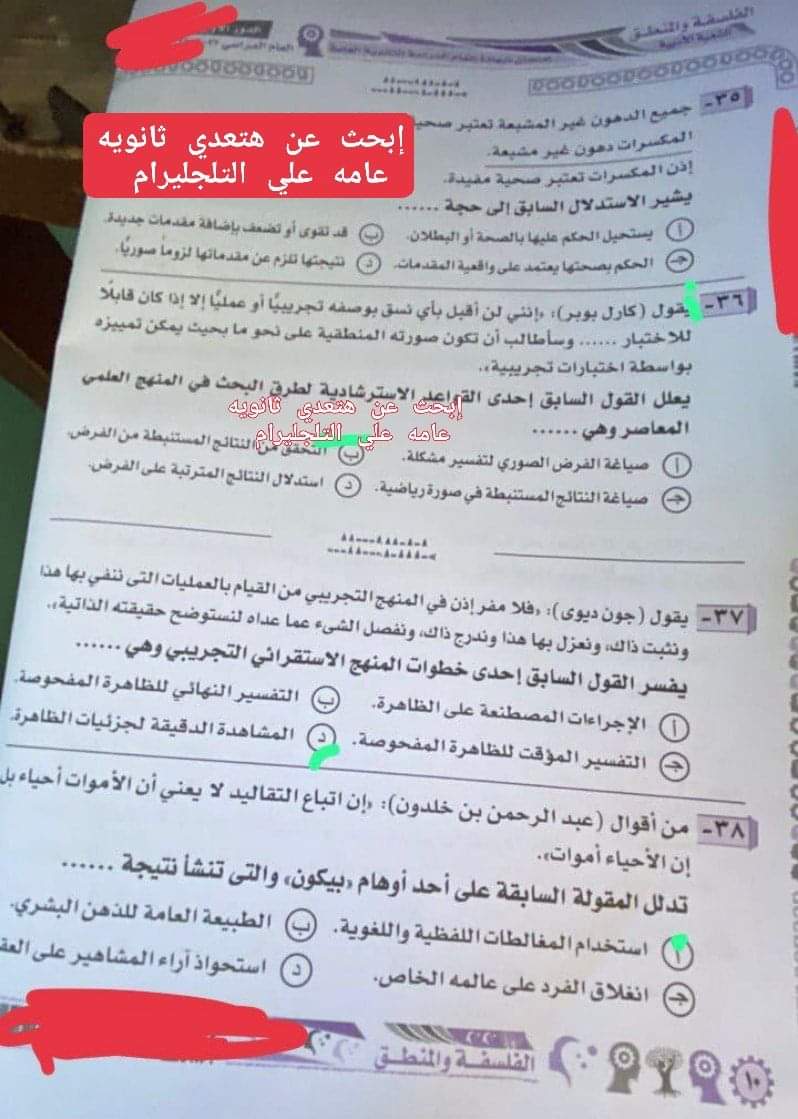 الفلسفة والمنطق
الشعبة الأدبية
إبحث عن هتعدي ثانويه
عامه علي التلجليرام
٣٥- جميع الدهون غير المشبعة تعتبر صحية
المكسرات دهون غير مشبعة.
إذن المكسرات تعتبر صحية مفيدة.
يشير الاستدلال السابق إلى حجة ......
أ يستحيل الحكم عليها بالصحة أو البطلان. ب قد تقوى أو تضعف بإضافة مقدمات جديدة.
ج الحكم بصحتها يعتمد على واقعية المقدمات. د نتيجتها تلزم عن مقدماتها لزوماً صوريًا.
٣٦- يقول (كارل بوبر): «إنني لن أقبل بأي نسق بوصفه تجريبيًا أو عمليًا إلا إذا كان قابلًا
للاختبار ...... وسأطالب أن تكون صورته المنطقية على نحو ما بحيث يمكن تمييزه
بواسطة اختبارات تجريبية».
يعلل القول السابق إحدى القواعد الاسترشادية لطرق البحث في المنهج العلمي
المعاصر وهي ......
إبحث عن هتعدي ثانويه
عامه علي التلجليرام
أ صياغة الفرض الصوري لتفسير مشكلة. ب التحقق من النتائج المستنبطة من الفرض.
ج صياغة النتائج المستنبطة في صورة رياضية. د استدلال النتائج المترتبة على الفرض.
٣٧- يقول (جون ديوى): «فلا مفر إذن في المنهج التجريبي من القيام بالعمليات التى ننفي بها هذا
ونثبت ذاك، ونعزل بها هذا وندرج ذاك، ونفصل الشىء عما عداه لنستوضح حقيقته الذاتية».
يفسر القول السابق إحدى خطوات المنهج الاستقرائي التجريبي وهي ......
أ الإجراءات المصطنعة على الظاهرة. ب التفسير النهائي للظاهرة المفحوصة.
ج التفسير المؤقت للظاهرة المفحوصة. د المشاهدة الدقيقة لجزئيات الظاهرة.
٣٨- من أقوال (عبد الرحمن بن خلدون): «إن اتباع التقاليد لا يعني أن الأموات أحياء بل
إن الأحياء أموات».
تدلل المقولة السابقة على أحد أوهام «بيكون» والتى تنشأ نتيجة ......
أ استخدام المغالطات اللفظية واللغوية. ب الطبيعة العامة للذهن البشري.
ج انغلاق الفرد على عالمه الخاص. د استحواذ آراء المشاهير على
الفلسفة والمنطق
١٠